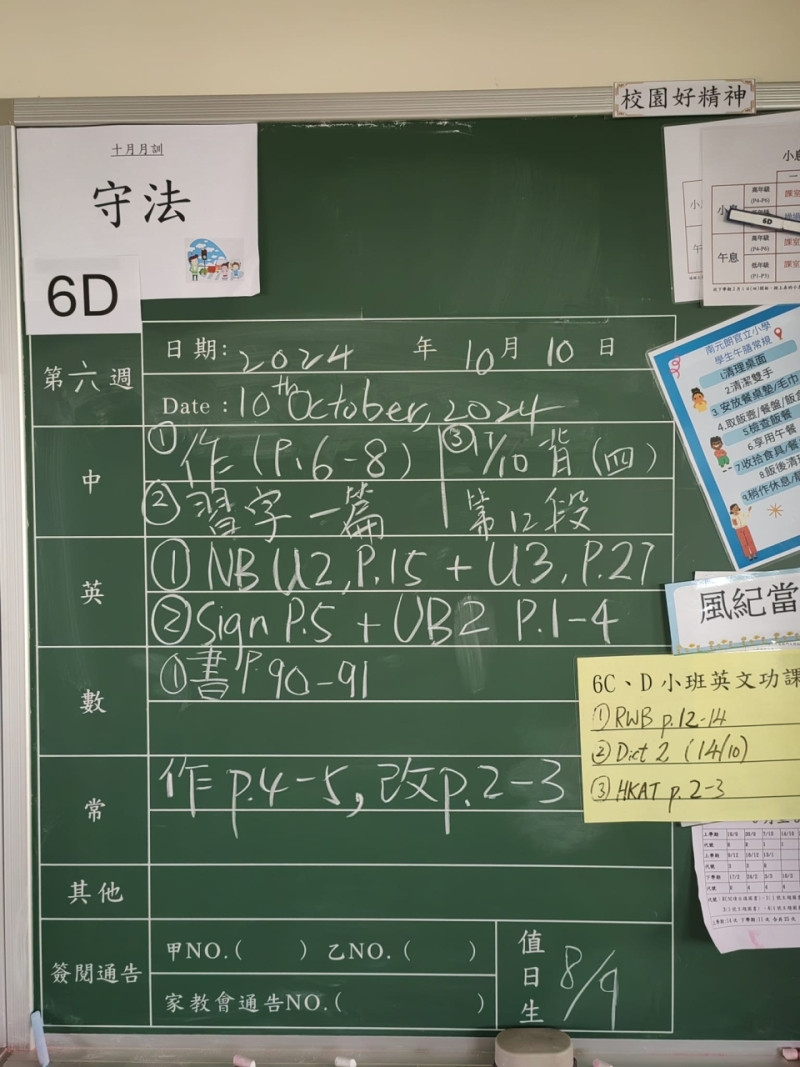 校園好精神
十月月訓
守法
6D
第六週
日期: 2024 年 10 月 10 日
Date : 10th October, 2024
中
① 作 (P.6-8)
② 習字一篇
③ 17/10 背 (四)
第12段
英
① NB U2, P.15 + U3, P.27
② Sign P.5 + UB2 P.1-4
數
① 書 P.90-91
常
作 p.4-5, 改 p.2-3
其他
簽閱通告
甲NO.( ) 乙NO.( )
家教會通告NO.( )
值日生
8/9
小息
高年級
(P4-P6)
6D
午息
高年級
(P4-P6)
低年級
(P1-P3)
南元朗官立小學
學生午膳常規
1.清理桌面
2.清潔雙手
3.安放餐桌墊/毛巾
4.取飯壺/餐盤/飯盒
5.檢查飯餐
6.享用午餐
7.收拾食具/餐
8.飯後清理
9.稍作休息/
風紀當
6C、D 小班英文功課
① RWB p.12-14
② Dict 2 (14/10)
③ HKAT p.2-3